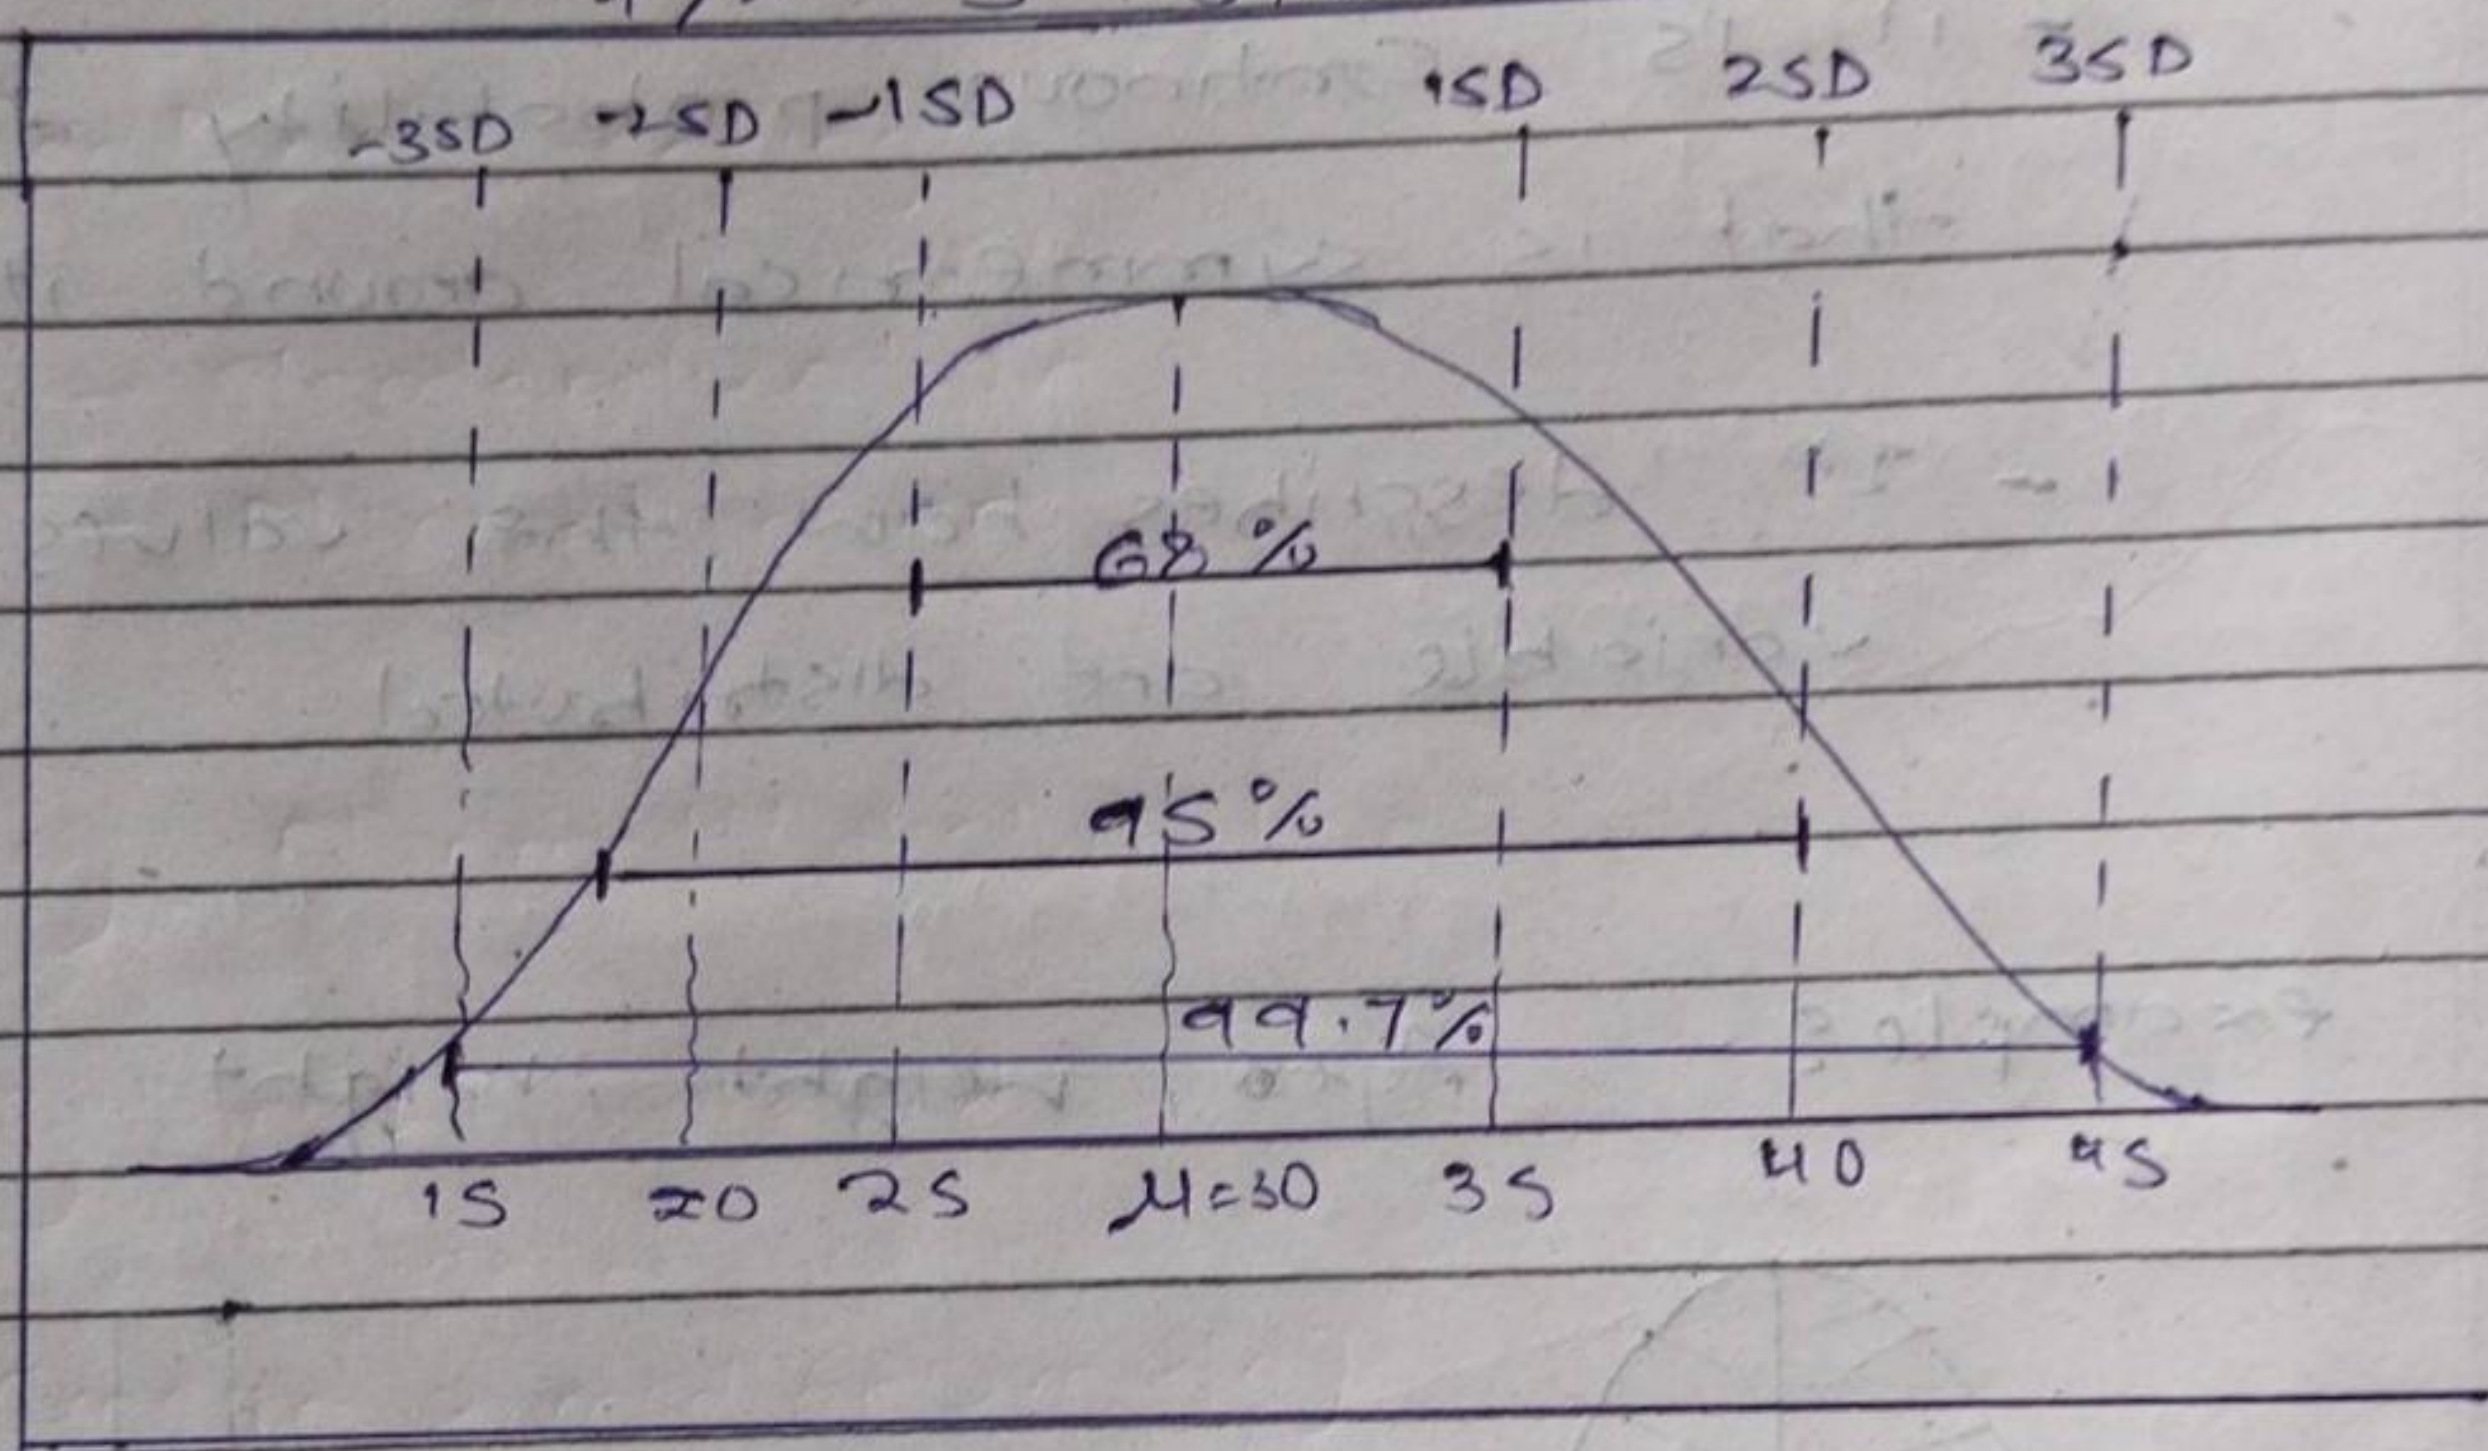 -3SD -2SD -1SD 1SD 2SD 3SD
68%
95%
99.7%
15 20 25 μ=30 35 40 45